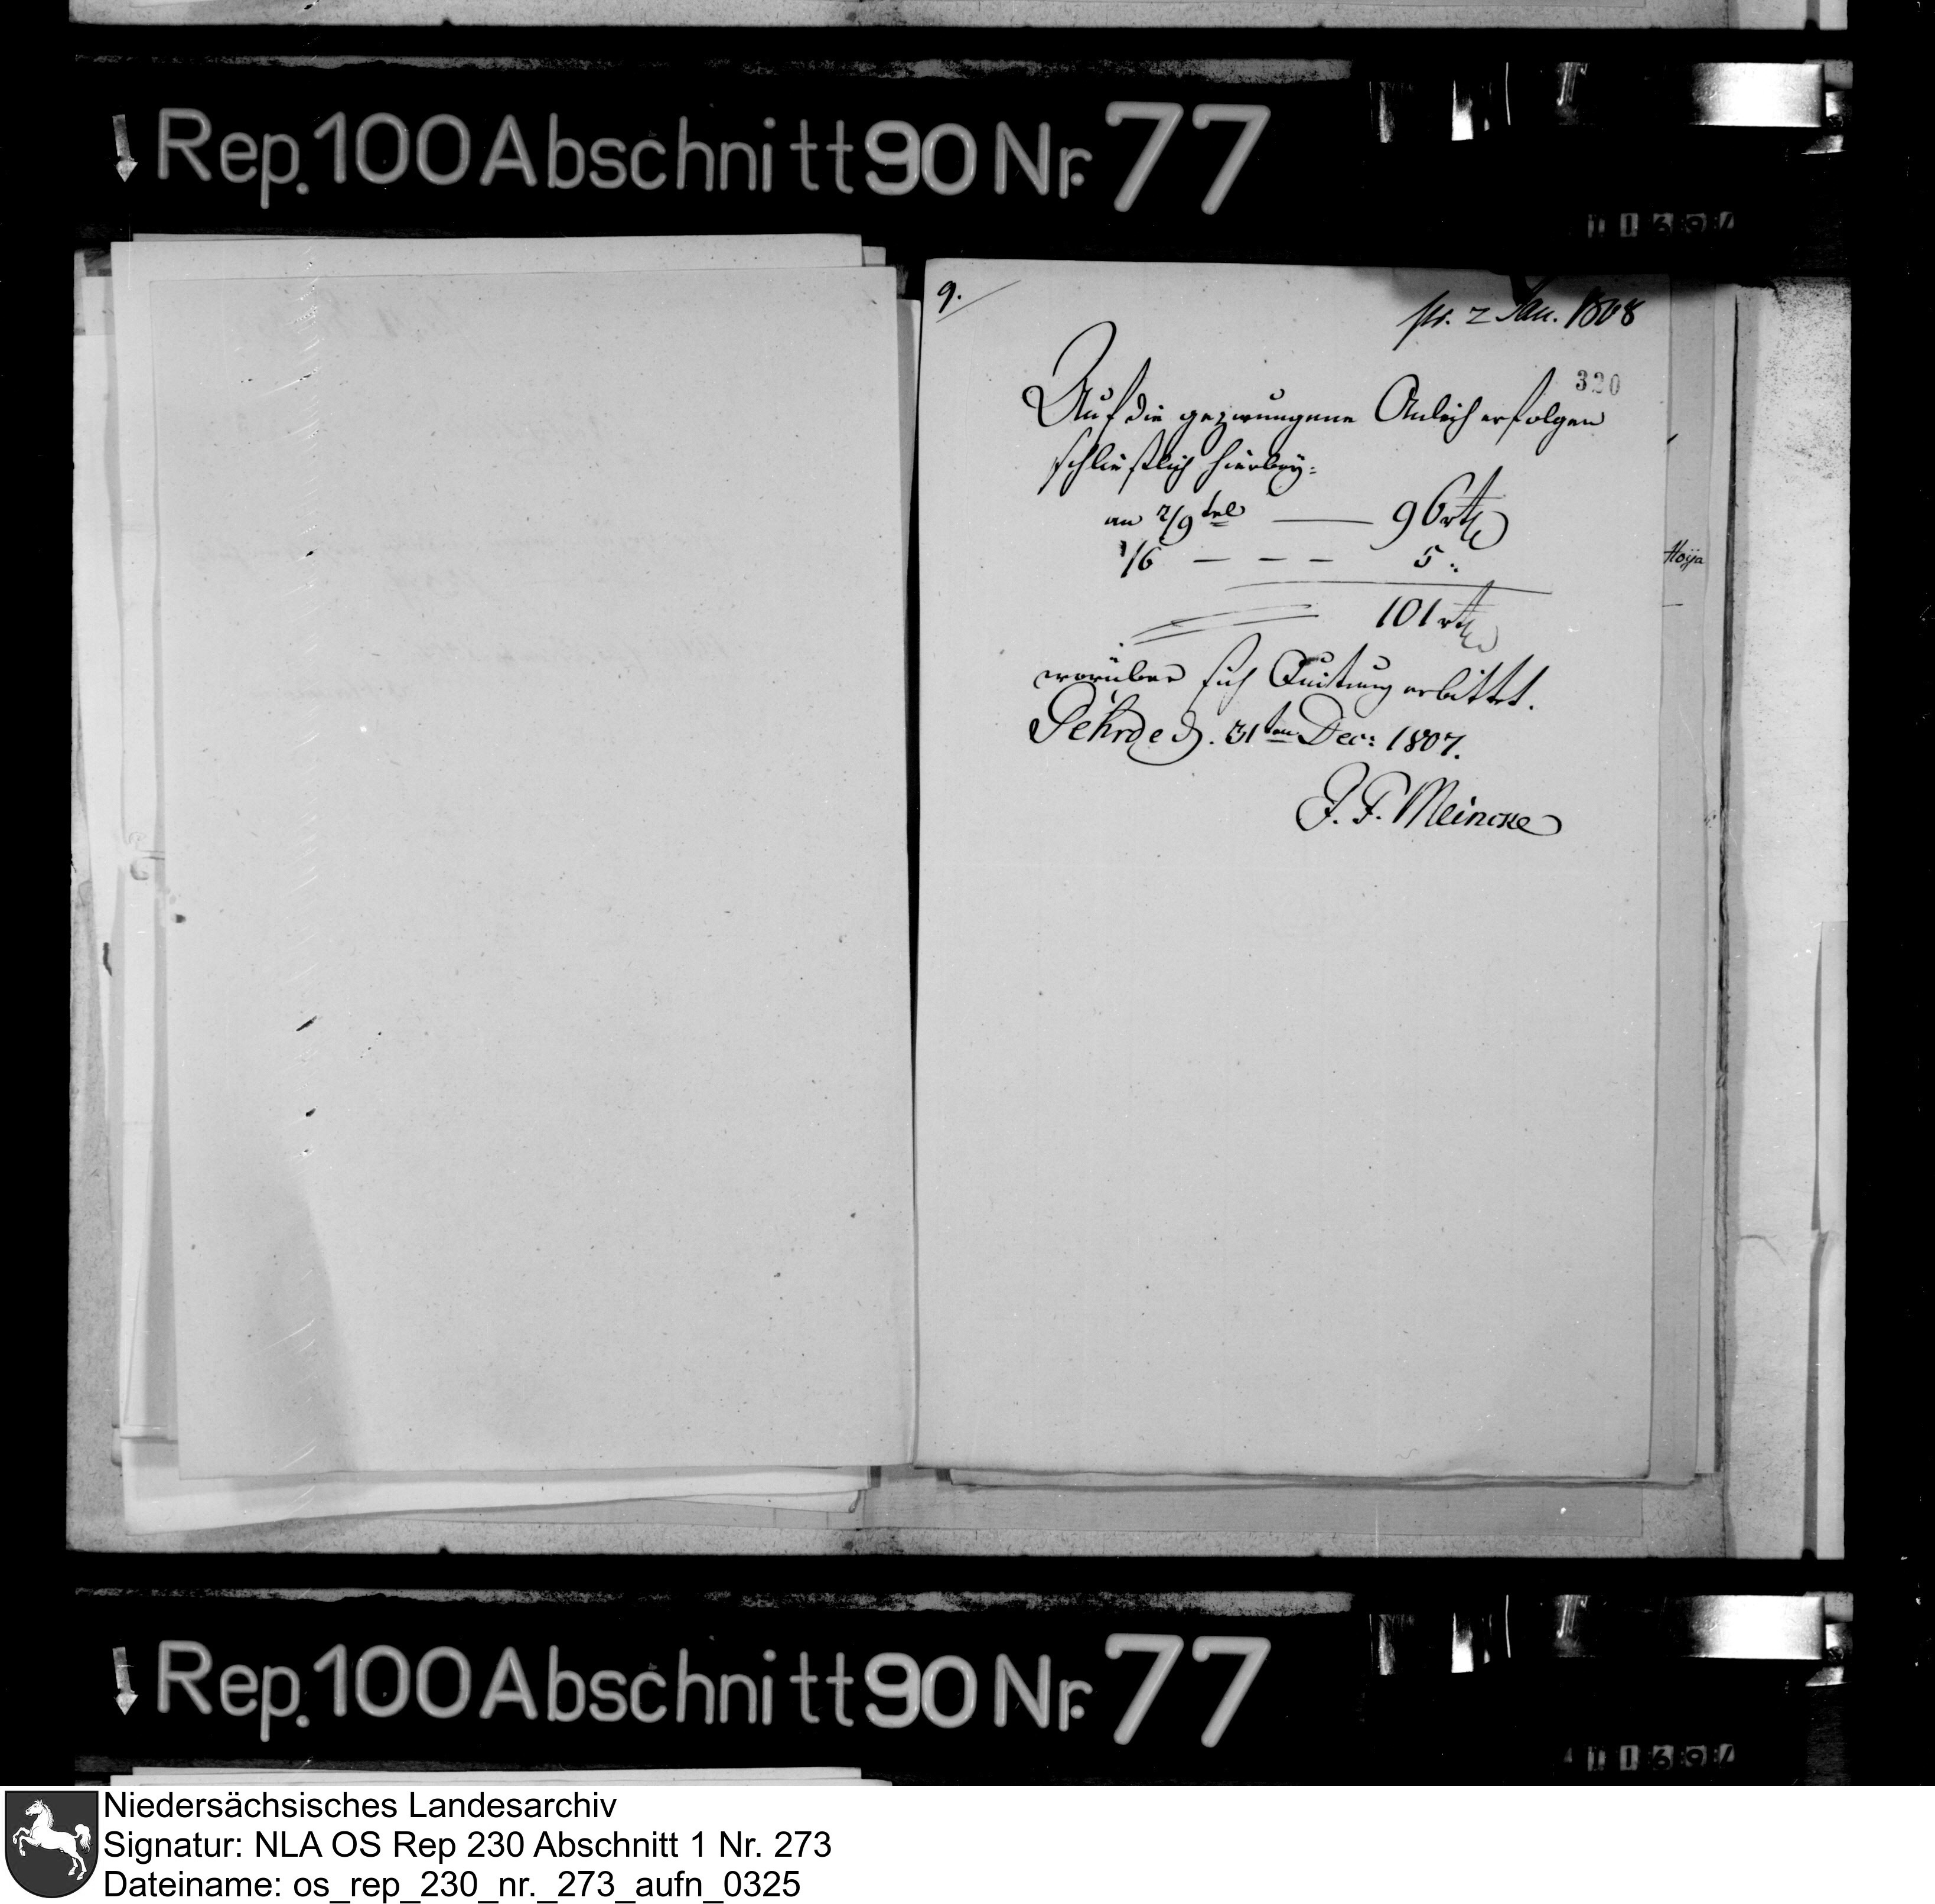 Rep. 100 Abschnitt 90 Nr. 77
9.
pr. 2 Jan. 1808
320
Auf die gezwungene Anleih erfolgen
schließlich hierbey:
an 2/9tel — 96 rthl
1/6 — — — 5 :
101 rthl
worüber sich Quitung erbittet.
Gehrde d. 31ten Dec: 1807.
J. F. Meincke
Hoya
Rep. 100 Abschnitt 90 Nr. 77
Niedersächsisches Landesarchiv
Signatur: NLA OS Rep 230 Abschnitt 1 Nr. 273
Dateiname: os_rep_230_nr._273_aufn_0325